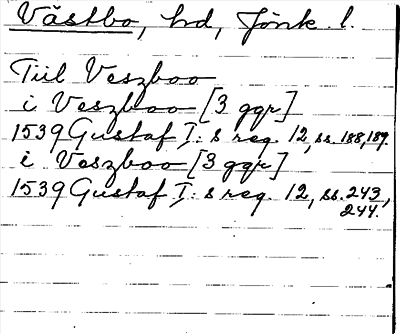 Västbo, hd, Jönk. l.
Tiil Veszboo
i Veszboo [3 ggr]
1539 Gustaf I:s reg. 12, ss. 188, 189.
i Veszboo [3 ggr]
1539 Gustaf I:s reg. 12, ss. 243,
244.